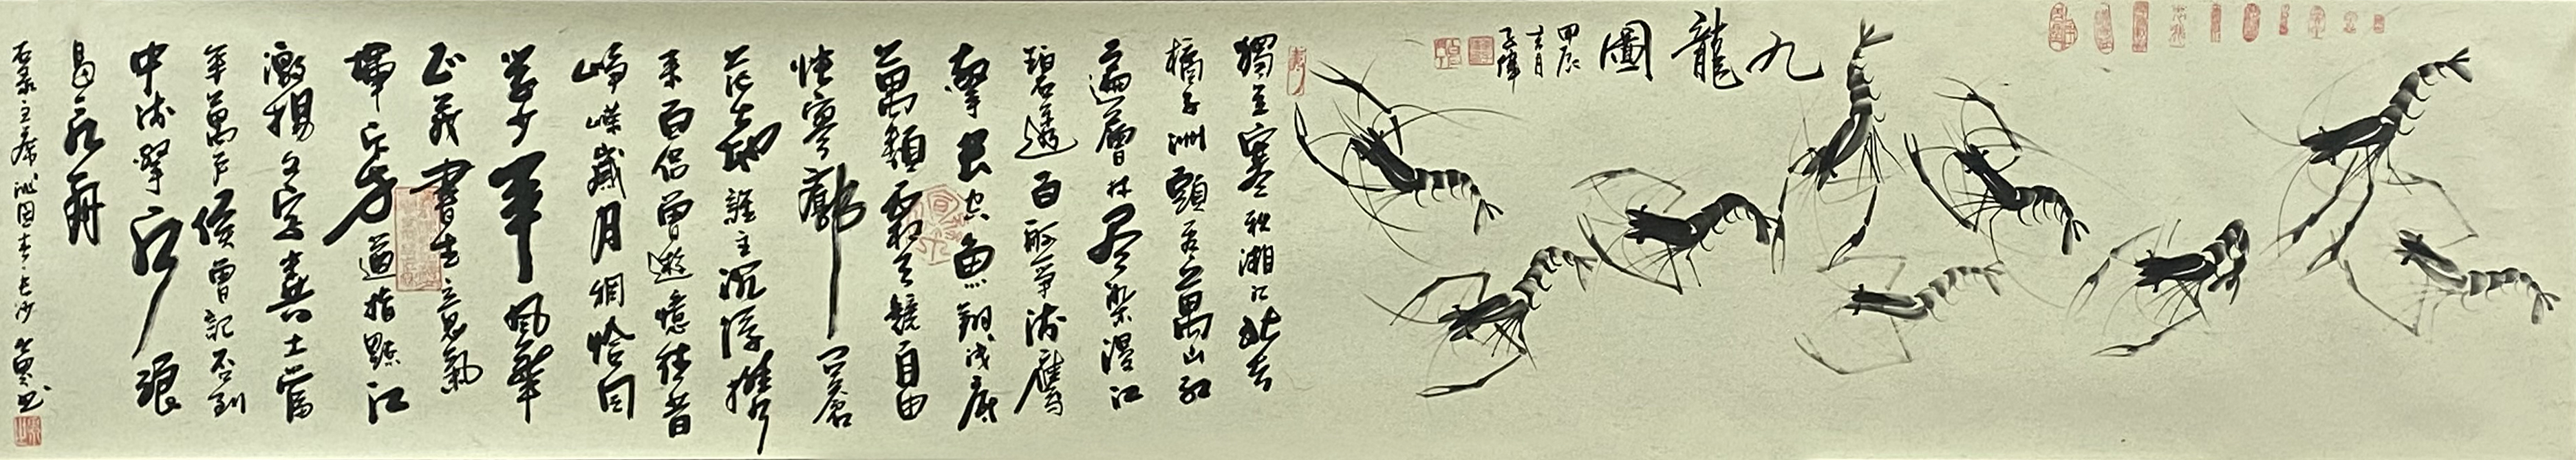 九龍圖
甲辰
吉月
獨立寒秋湘江北去
橘子洲頭看萬山紅
遍層林尽染漫江
碧透百舸爭流鷹
擊長空魚翔淺底
萬類霜天競自由
悵寥廓问蒼
茫大地誰主沉浮携
来百侣曾遊憶往昔
崢嶸歲月稠恰同
学少年風華
正茂書生意氣
揮斥方遒指點江
激揚文字糞土當
年萬户侯曾記否到
中流擊水浪
遏飛舟
右录主席沁園春長沙